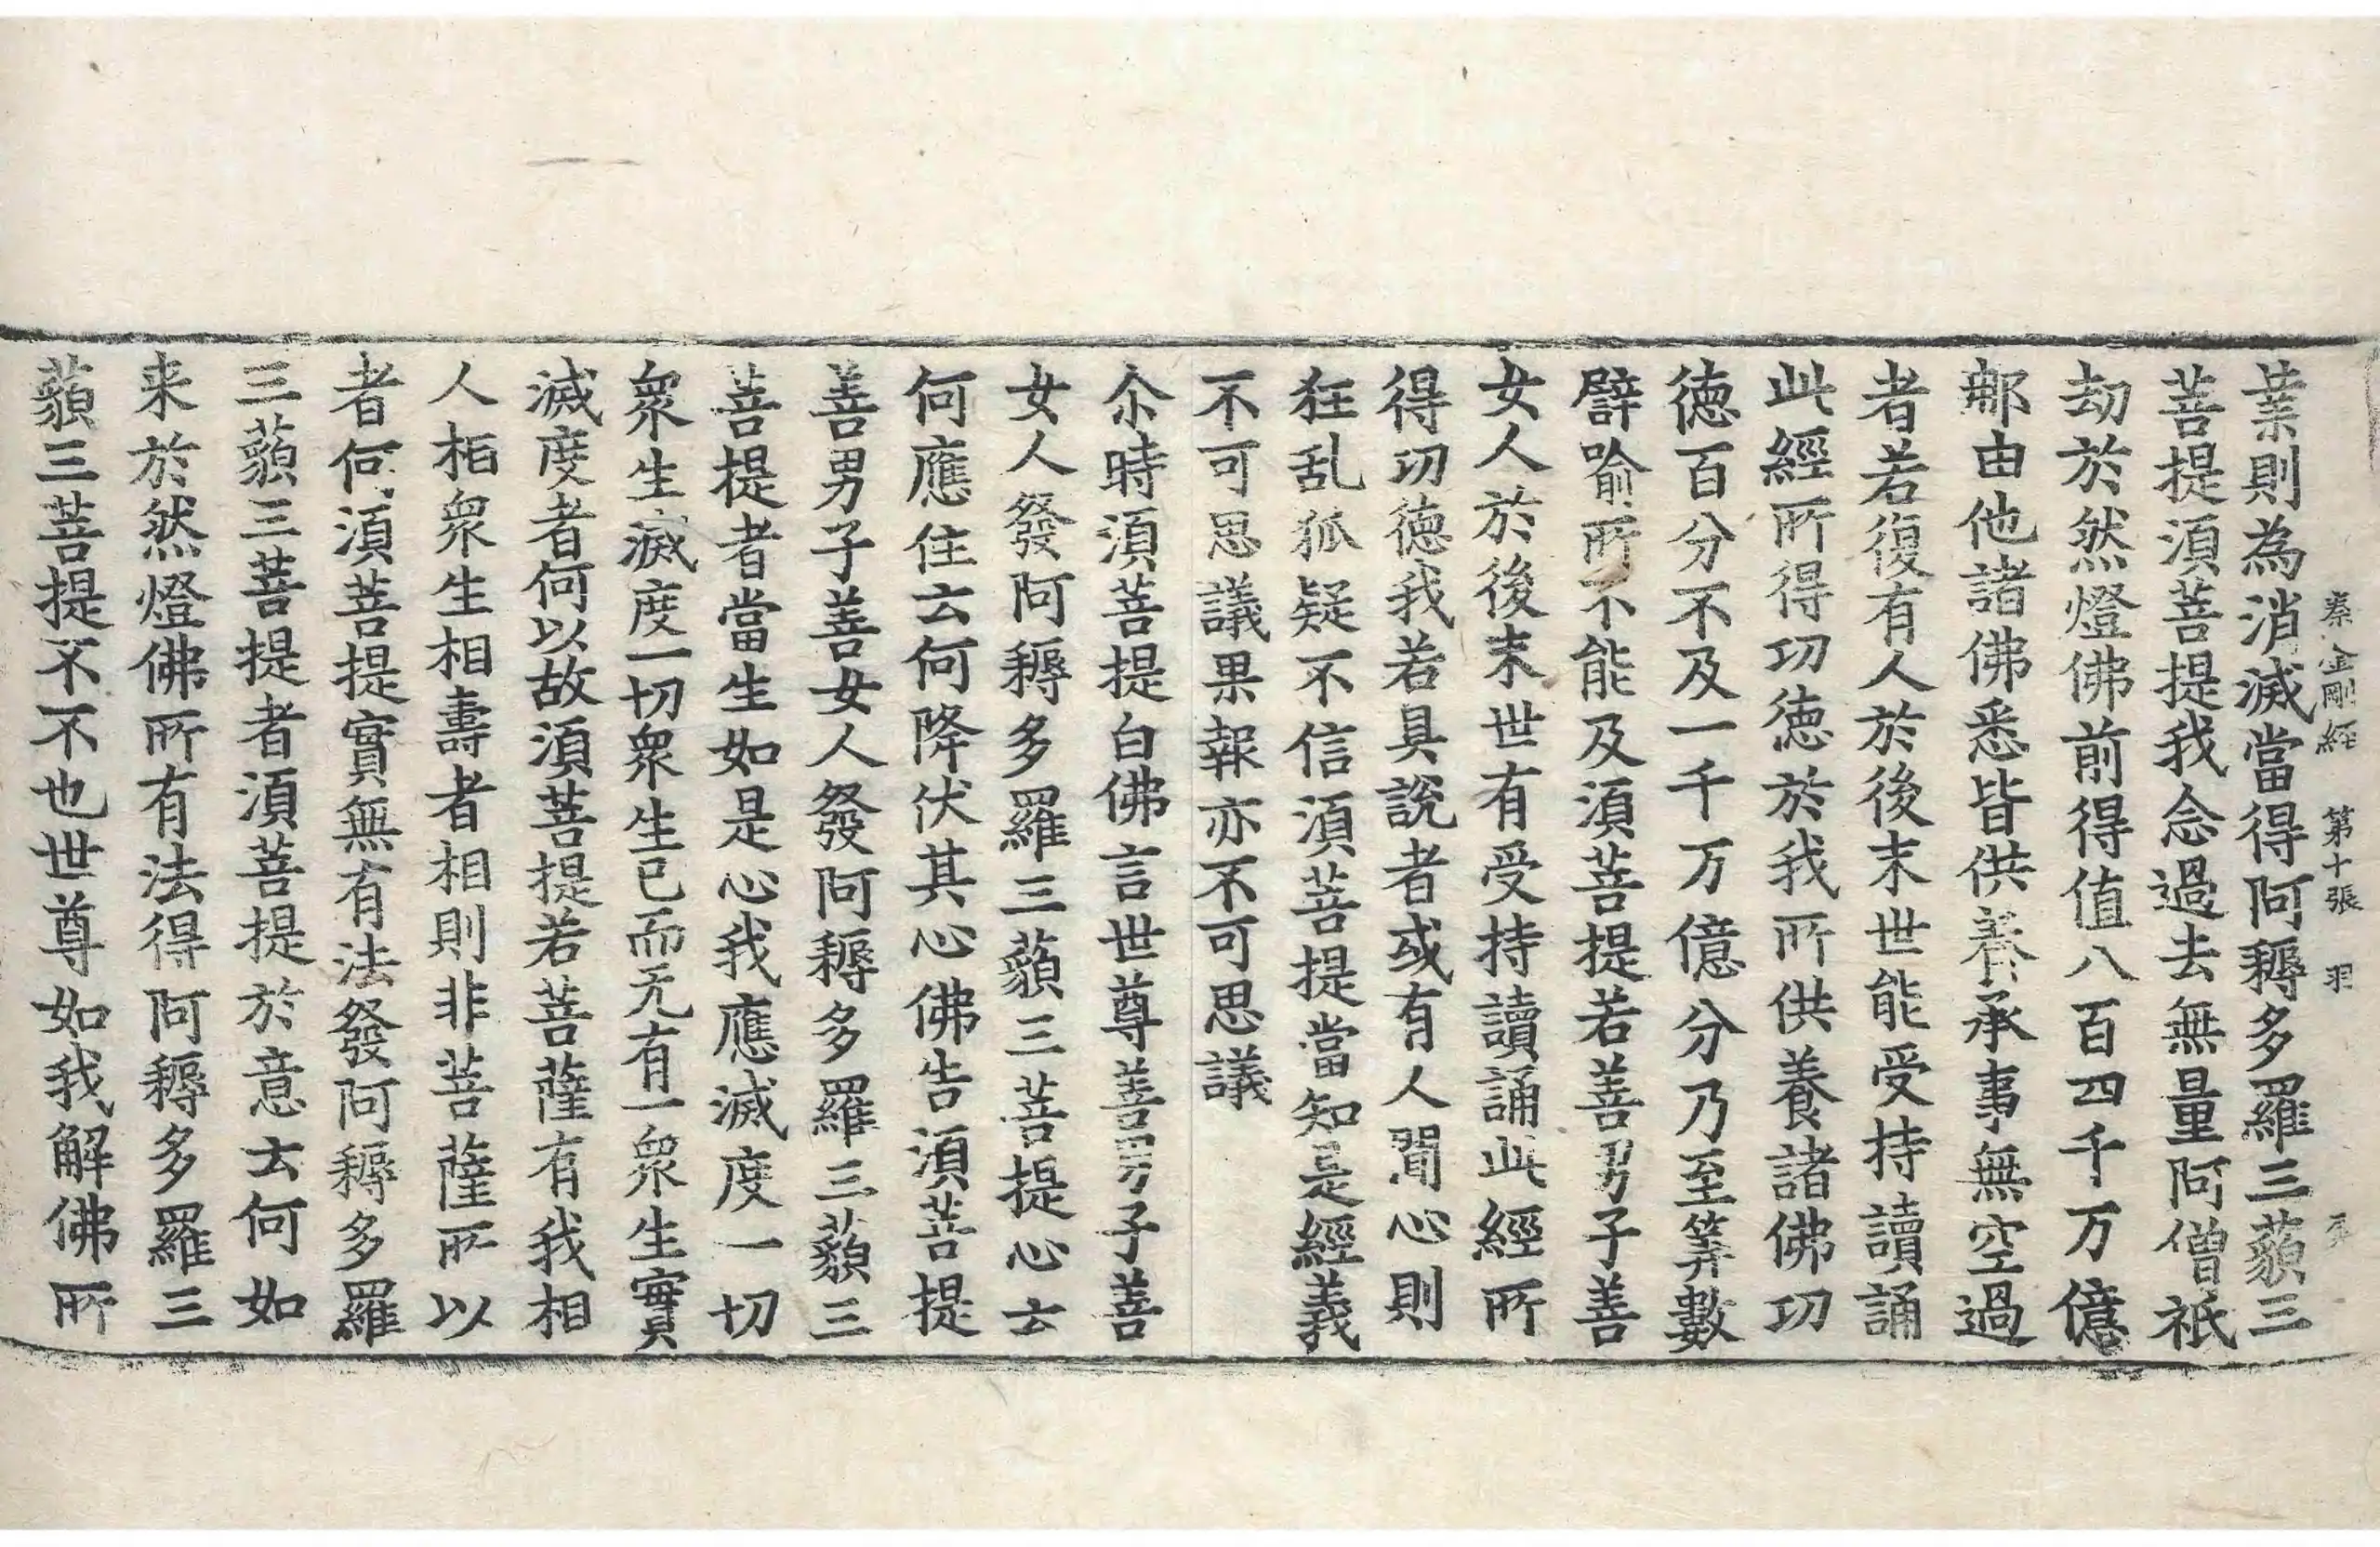 秦金剛経 第十張 羽
業則為消滅當得阿耨多羅三藐三
菩提須菩提我念過去無量阿僧祇
劫於然燈佛前得值八百四千万億
那由他諸佛悉皆供養承事無空過
者若復有人於後末世能受持讀誦
此經所得功徳於我所供養諸佛功
徳百分不及一千万億分乃至筭數
譬喻所不能及須菩提若善男子善
女人於後末世有受持讀誦此經所
得功徳我若具說者或有人聞心則
狂乱狐疑不信須菩提當知是經義
不可思議果報亦不可思議
尒時須菩提白佛言世尊善男子善
女人發阿耨多羅三藐三菩提心云
何應住云何降伏其心佛告須菩提
善男子善女人發阿耨多羅三藐三
菩提者當生如是心我應滅度一切
衆生滅度一切衆生已而无有一衆生實
滅度者何以故須菩提若菩薩有我相
人相衆生相壽者相則非菩薩所以
者何須菩提實無有法發阿耨多羅
三藐三菩提者須菩提於意云何如
来於然燈佛所有法得阿耨多羅三
藐三菩提不不也世尊如我解佛所